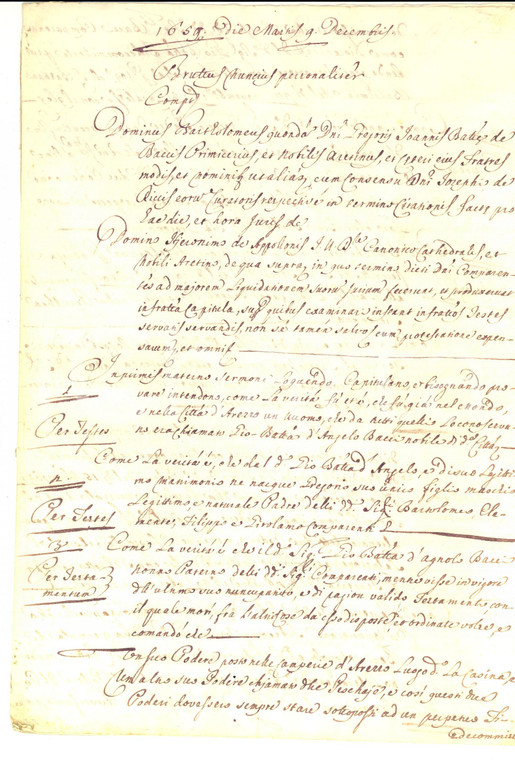 1659. Die Martis 9. Decembris
Bruttus Nuncius personaliter
Comp.t
Dominus Bartholomeus quondã Dni Gregorij Ioannis Battẽ de
Baccis Primicerius, et Nobilis Aretinus, et ceteri eius fratres
modis, et nominib.s ut alias, cum consensu Dni Josephi de
Riccis eorũ Curatoris respective in termino Citationis factẽ pro
hac die, et hora Jures de
Domino Hieronimo de Appollonis I. U. D.re Canonico Cathedrales, et
Nobili Aretino, de qua supra, in quo termino dicti Dni Comparen-
tes ad majorem Liquidationem suorũ Jurium fecerunt, et produxerunt
infratta Capitula, sup. quibus examinari instant infratios Testes
servatis servandis, non se tamen salvos cum protestatione expen-
sarum, et omnis
Inprimis materno Sermone Loquendo Capitulano, et bisognando pro-
vare intendono, come La verità fù et è, che fù già nel mondo,
e nella Città d'Arezzo un Uomo, che da tutti quelli Lo conosceva-
no era chiamato Gio Batta d'Angelo Bacci nobile di d.a Città
1
Per Testes
Come La verità è, che dal d.o Gio Batta d'Angelo, e di suo Legitti-
mo Matrimonio ne nacque Gregorio suo unico figlio maschio
Legittimo e naturale Padre delli dd.i Sig.ri Bartolomeo Cle-
mente, Filippo e Girolamo Comparenti
2
Per Testes
Come La verità è che il d.o Sig.re Gio Batta d'Agnolo Bacci
Nonno Paterno delli dd.i Sig.ri Comparenti, mentre visse in vigore
dell'ultimo suo nuncupativo, e di ragion valido Testamento con
il quale morì, frà L'altre cose da esso disposte, et ordinate volse, e
comandò che
3
Per Testa-
mentum
Un suo Podere posto nelle Camperie d'Arezzo Luogo d.o La Casina, e
Un altro suo Podere chiamato che Peschajo, e così questi due
Poderi dovessero sempre stare sottoposti ad un perpetuo Fi-
decommisso